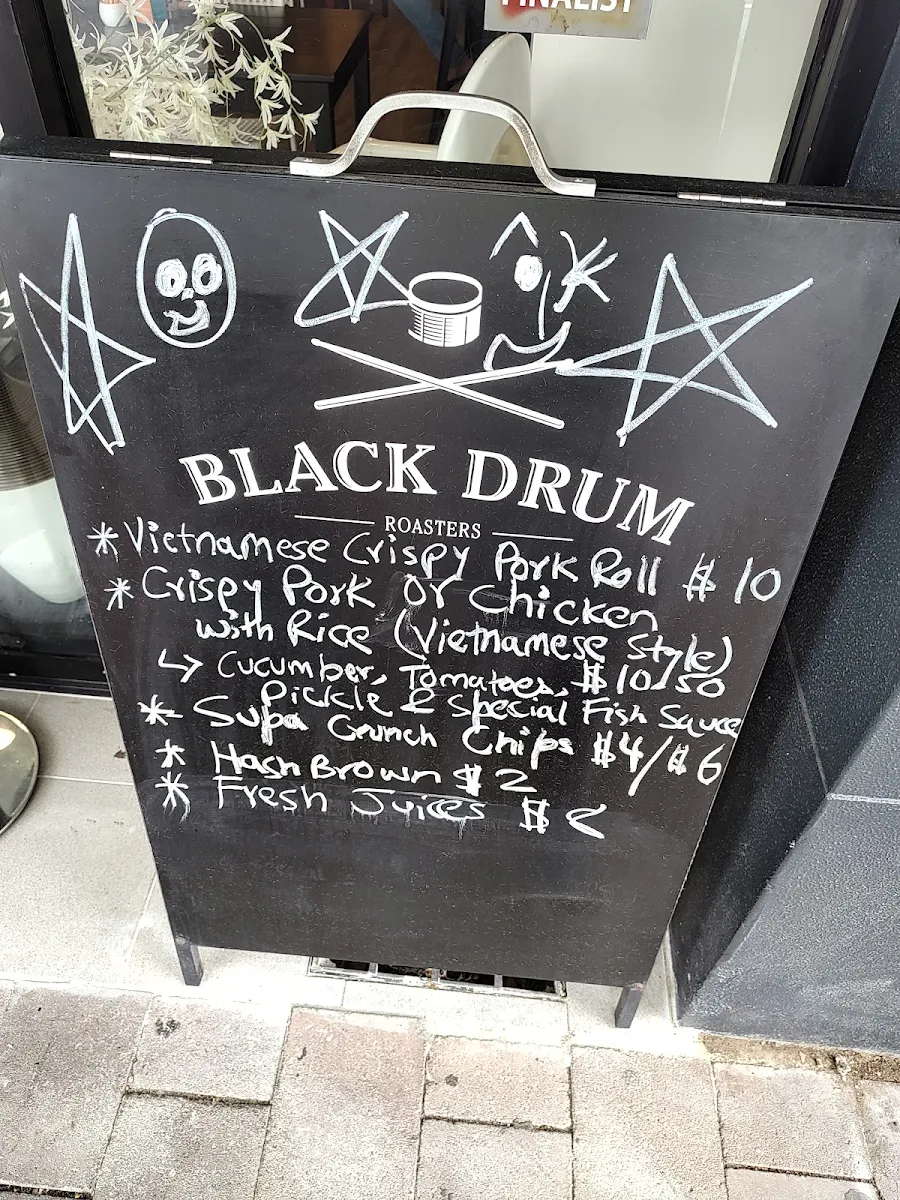 FINALIST
BLACK DRUM
ROASTERS
* Vietnamese Crispy Pork Roll $10
* Crispy Pork Or Chicken
with Rice (Vietnamese Style)
↳ Cucumber, Tomatoes, $10/50
Pickle & Special Fish Sauce
* Supa Crunch Chips $4/$6
* Hash Brown $2
* Fresh Juices $